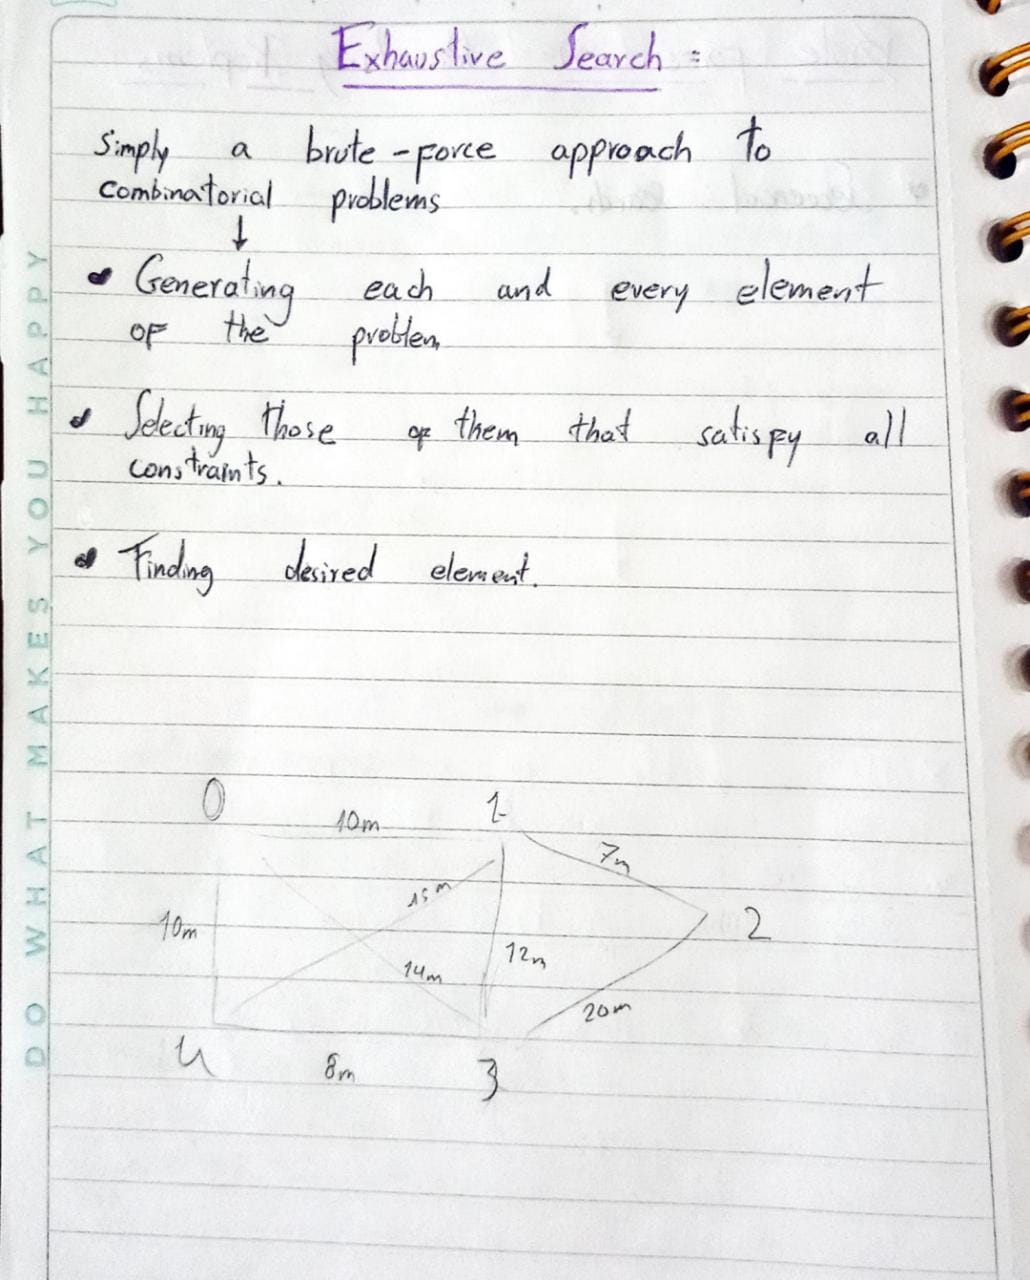 Exhaustive Search :
Simply a brute-force approach to
combinatorial problems
Generating each and every element
of the problem
Selecting those of them that satisfy all
constraints.
Finding desired element.
0
1
10m
7m
15m
10m
2
12m
14m
20m
4
8m
3
DO WHAT MAKES YOU HAPPY